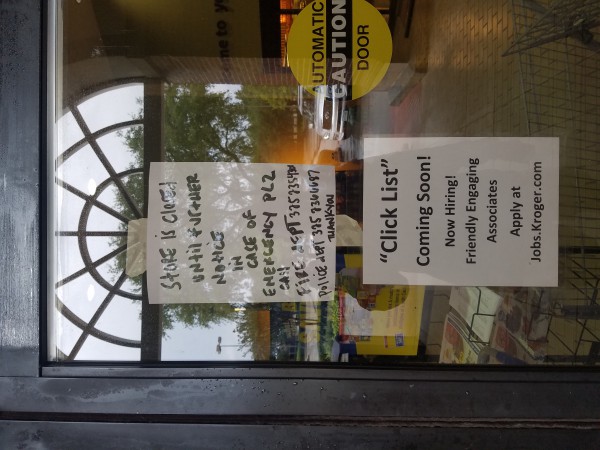 AUTOMATIC
CAUTION
DOOR
STORE IS CLOSED
UNTIL FURTHER
NOTICE
IN
CASE OF
EMERGENCY PLZ
CALL
FIRE DEPT
POLICE DEPT
THANK YOU
"Click List"
Coming Soon!
Now Hiring!
Friendly Engaging
Associates
Apply at
Jobs.Kroger.com